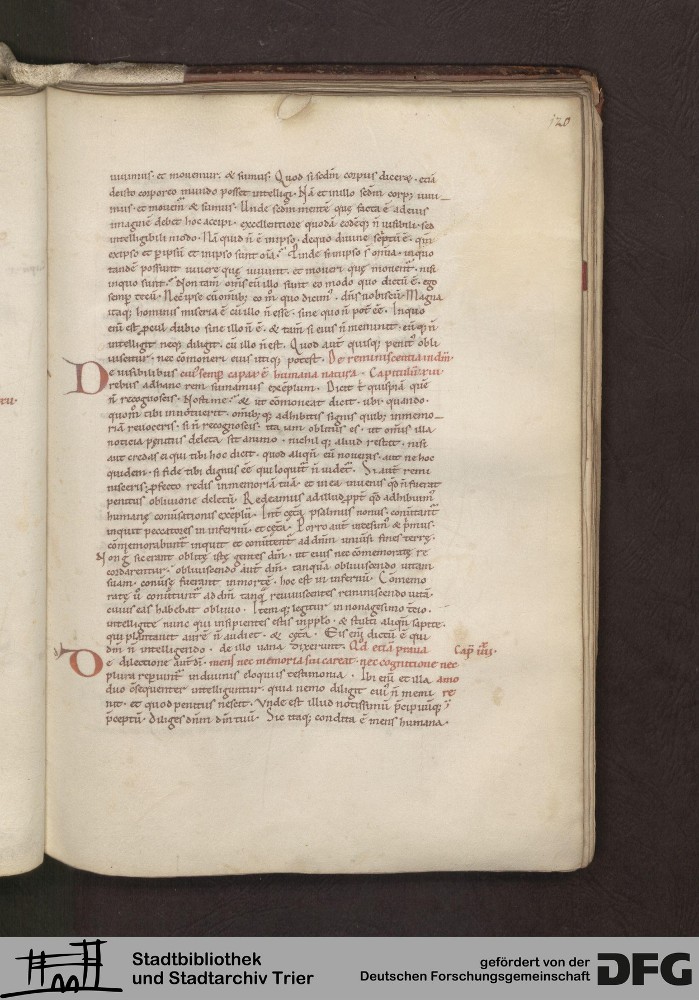 120
uiuimus· et mouemur· & sumus· Quod si sedm̄ corpus diceret· etiā
de isto corporeo mundo posset intelligi· Nā et in illo sedm̄ corpꝰ uiui
mus· et mouem̄ & sumus· Unde sedm̄ mentē quę facta ē ad eius
imaginē debet hoc accipi· excellentiore quodā eodēq; ñ uisibili· sed
intelligibili modo· Nā quid ñ ē in ipso· de quo diuine scͥptū ē· qm̄
ex ipso et ꝑ ipsū et in ipso sunt oīa· Proinde si in ipso sͭ omīa· in quo
tandē possunt uiuere quę uiuunt· et moueri quę mouent̄· nisi
in quo sunt· Non tam̄ om̄s cū illo sunt eo modo quo dictū ē· ego
semꝑ tecū· Nec ipse cū om̄ib; eo m̊ quo dicimꝰ· dn̄s uobiscū· Magna
itaq; hominis miseria ē cū illo ñ esse· sine quo ñ pot̄ ee͂· In quo
eni est ꝓcul dubio sine illo ñ ē· & tam̄ si eius ñ meminit· eūq; ñ
intelligit neq; diligit· cū illo ñ est· Quod aut̄ quisq; penitꝰ obli
uiscitur· nec cōmoneri eius utiq; potest·
De uisibilibus cui semꝑ capax ē humana natura· Capitulū· xvii
rebus ad hanc rem sumamus exēplum· Dicit t̄ quispiā quē
ñ recognoscis· Nosti me· & ut cōmoneat dicit· ubi· quando·
quom̊ tibi innotuerit· om̄ibq; adhibitis signis quib; in memo
riā reuoceris· si ñ recognoscis· ita iam oblitus es· ut om̄is illa
noticia penitus deleta sit animo· nichil q; aliud restet· nisi
aut credas ei qui tibi hoc dicit· quod aliqn̄ eū noueras· aut ne hoc
quidem· si fide tibi dignus ee͂ qui loquit̄ ñ uidet̄· Si aut̄ remi
nisceris· ꝓfecto redis in memoriā tuā· et in ea inuenis qđ ñ fuerat
penitus obliuione deletū· Redeamus ad illud ꝓpt̄ qđ adhibuimꝰ
humanę conuersationis exēplū· Int̄ cęt̄a psalmus nonus· conuertant̄
inquit peccatores in infernū· et cęt̄a· Porro aut̄ uicesimꝰ & primus·
cōmemorabunt̄ inquit et conuertent̄ ad dn̄m uniu͂si fines terrę·
Non g̊ sic erant oblitę istę gentes dm̄· ut eius nec cōmemoratę re
cordarentur· obliuiscendo aut̄ dm̄· tanquā obliuiscendo uitam
suam· conuersę fuerant in mortē· hoc est in infernū· Comemo
ratę ū conuertunt̄ ad dm̄ tanq̄ reuiuiscentes reminiscendo uitā·
cuius eas habebat obliuio· Item q; legitur in nonagesimo t̄cio·
intelligite nunc qui insipientes estis in ppłō· & stulti aliqn̄ sapite·
qui plantauit aurē ñ audiet· & cęt̄a· Eis eni dictū ē qui
dm̄ ñ intelligendo· de illo uana dixerunt· Qđ etiā praua Cap̄ iiii·
De dilectione aut̄ dī· mens nec memoria sui careat· nec cognitione nec
plura reperiunt̄ in diuinis eloquiis testimonia· Ibi eni et illa amo
duo cōsequenter intelliguntur· quia nemo diligit cuiꝰ ñ memi re
nit· et quod penitus nescit· Unde est illud notissimū p̄cipuūq;
p̄ceptū· Diliges dn̄m dm̄ tuū· Sic itaq; condita ē mens humana·
Stadtbibliothek
und Stadtarchiv Trier
gefördert von der
Deutschen Forschungsgemeinschaft
DFG